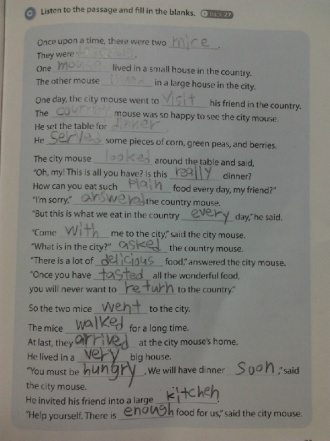 Listen to the passage and fill in the blanks.
Once upon a time, there were two mice.
They were
One mouse lived in a small house in the country.
The other mouse in a large house in the city.
One day, the city mouse went to visit his friend in the country.
The country mouse was so happy to see the city mouse.
He set the table for dinner
He serves some pieces of corn, green peas, and berries.
The city mouse looked around the table and said,
"Oh, my! This is all you have? Is this really dinner?
How can you eat such plain food every day, my friend?"
"I'm sorry," answered the country mouse.
"But this is what we eat in the country every day," he said.
"Come with me to the city," said the city mouse.
"What is in the city?" asked the country mouse.
"There is a lot of delicious food." answered the city mouse.
"Once you have tasted all the wonderful food,
you will never want to return to the country."
So the two mice went to the city.
The mice walked for a long time.
At last, they arrived at the city mouse's home.
He lived in a very big house.
"You must be hungry. We will have dinner soon," said
the city mouse.
He invited his friend into a large kitchen
"Help yourself. There is enough food for us," said the city mouse.